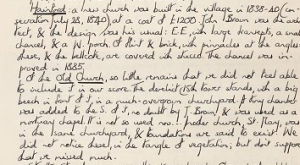 Hainford: a new church was built in the village in 1838-40 (con-
secration July 25, 1840) at a cost of £1200. John Brown was the archi-
tect, & the design was his usual: E.E., with large transepts, a small
chancel, & a W. porch, of flint & brick, with pinnacles at the angles.
these, & the are covered with stucco. The chancel was im-
proved in 1885.
Of the Old Church, so little remains that we did not feel able
to include it in our score. The derelict 15th. tower stands, with a big
beech in front of it, in a much-overgrown churchyard. A tiny chancel
was added to the E. of it, no doubt by J. Brown, & was used as a
mortuary chapel. It is not so used now. Another church, St. Mary, was
in the same churchyard, & foundations are said to exist. We
did not notice these, in the tangle of vegetation; but don't suppose
that we missed much.